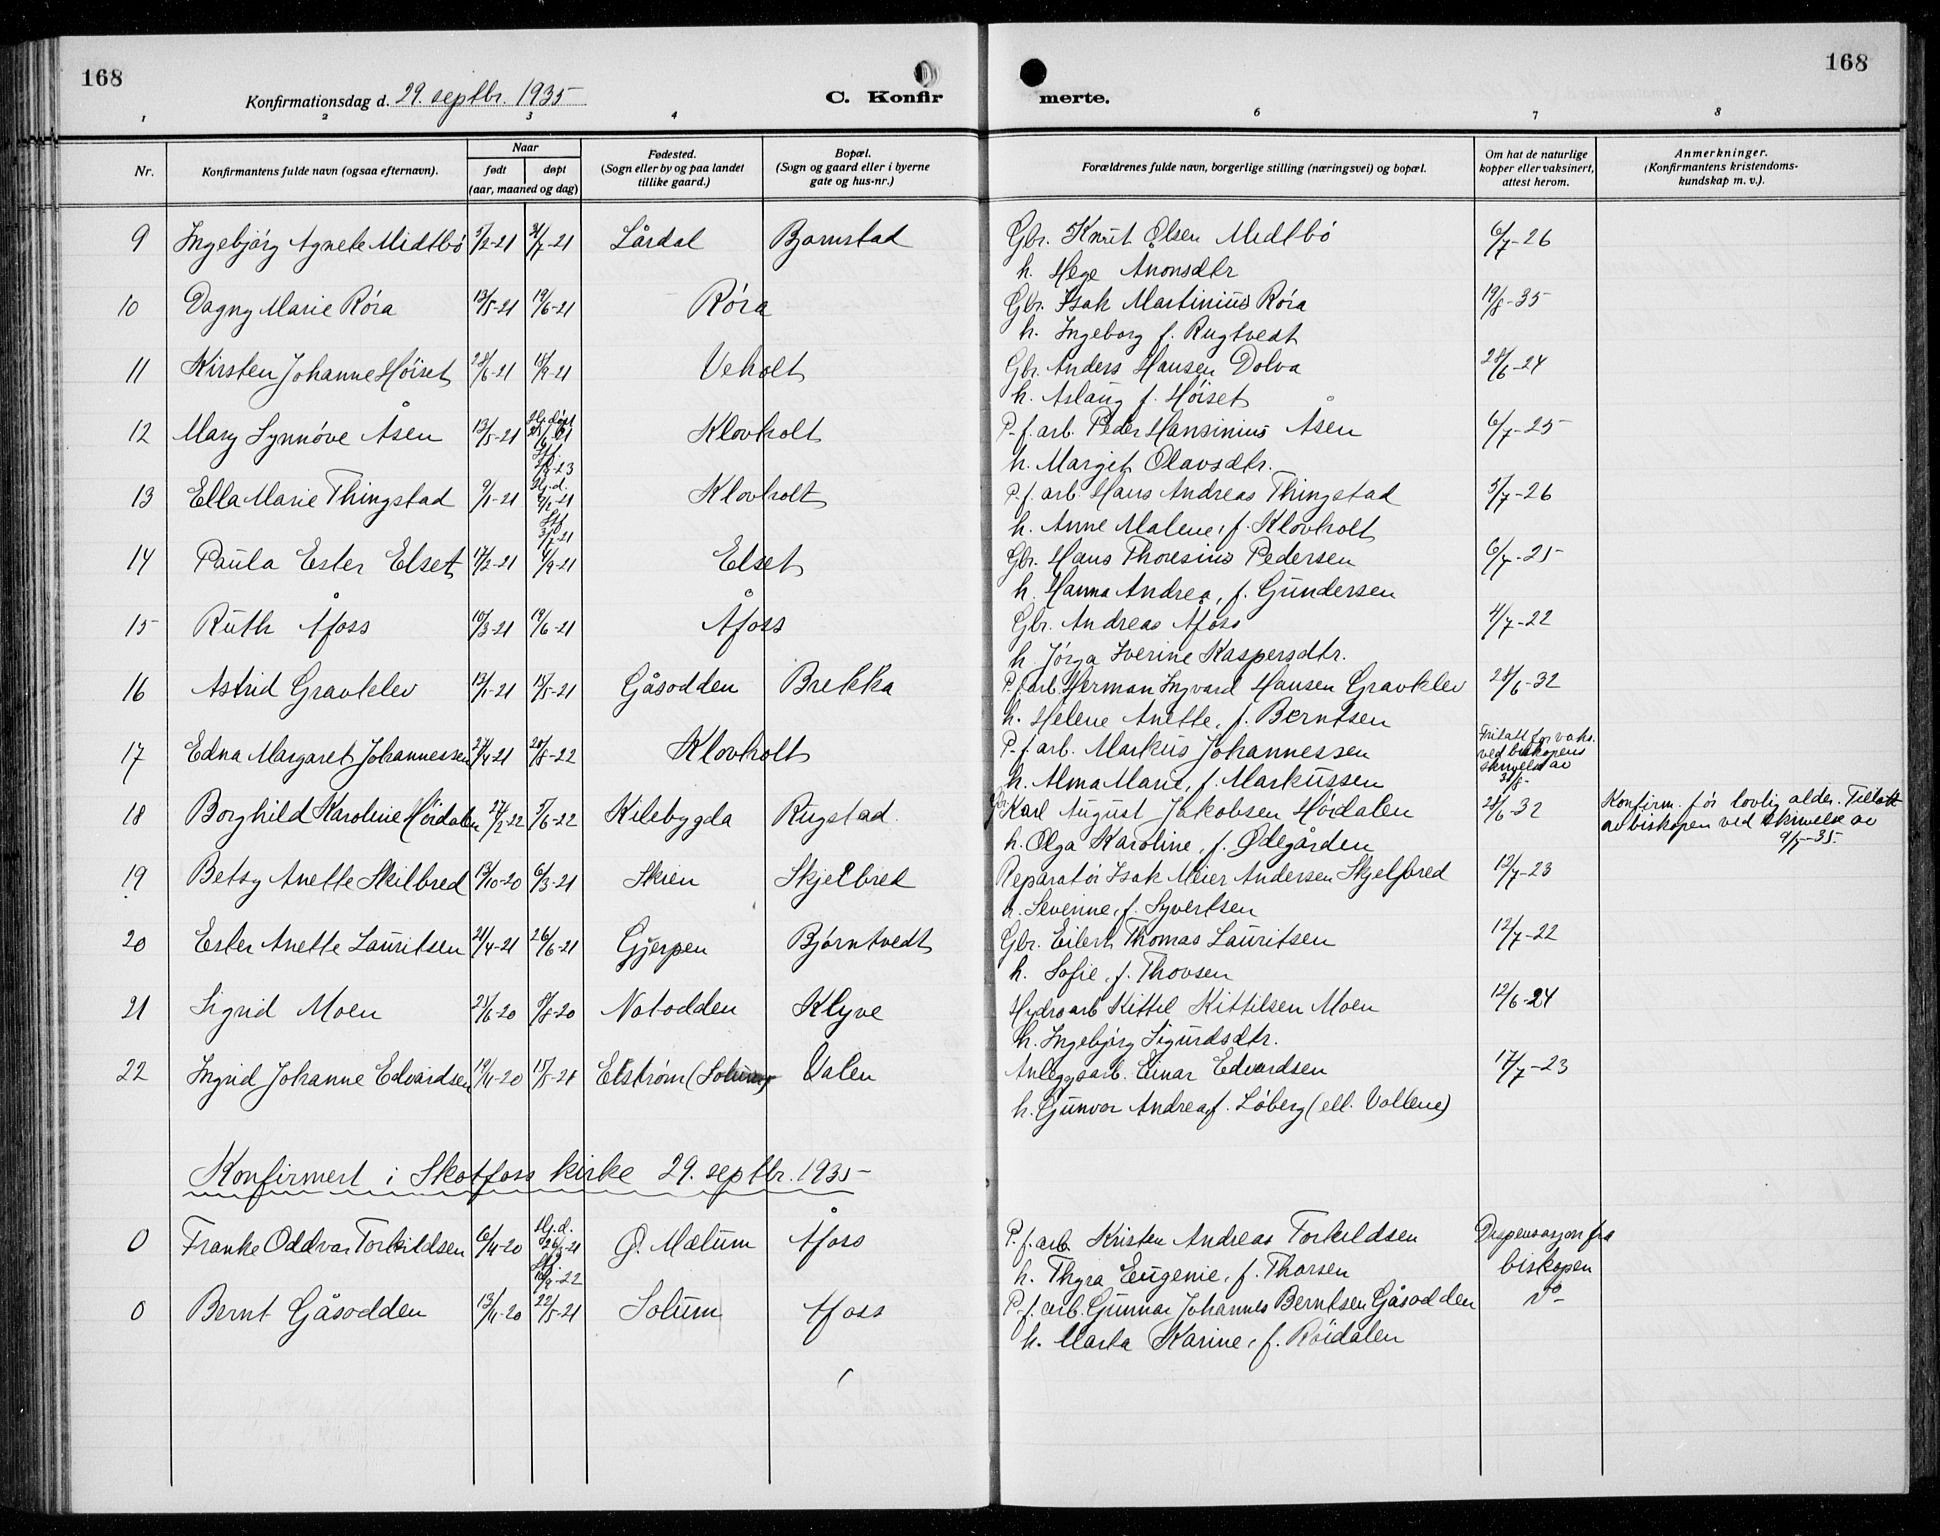 168
Konfirmationsdag d. 29. septbr. 1935
C. Konfir
merte.
168
1 2 3 4 6 7 8
Nr.
Konfirmantens fulde navn (ogsaa efternavn).
Naar
født
døpt
(aar, maaned og dag)
Fødested.
(Sogn eller by og paa landet
tillike gaard.)
Bopæl.
(Sogn og gaard eller i byerne
gate og hus-nr.)
Forældrenes fulde navn, borgerlige stilling (næringsvei) og bopæl.
Om hat de naturlige
kopper eller vaksinert,
attest herom.
Anmerkninger.
(Konfirmantens kristendoms-
kundskap m. v.).
9 Ingebjörg Agnete Midtbö 3/2-21 31/7-21 Lårdal Bamstad Gbr. Knut Olsen Midtbö 6/7-26
h. Hege Ånonsdtr
10 Dagny Marie Róra 13/5-21 19/6-21 Róra Gbr. Isak Martinius Róra 19/8-35
h. Ingeborg f. Rugtvedt
11 Kirsten Johanne Höiset 28/6-21 18/9-21 Veholt Gbr. Anders Hansen Dolva 28/6-24
h. Aslaug f. Höiset
12 Mary Synnóve Åsen 13/5-21 Hj. döpt Klovholt P.f.arb. Peder Hansinius Åsen 6/7-25
h. Margit Olavsdtr.
13 Ella Marie Thingstad 9/1-21 Hj. d. Klovholt P.f.arb. Hans Andreas Thingstad 5/7-26
h. Anne Malene, f. Klovholt
14 Paula Ester Elset 17/2-21 4/9-21 Elset Gbr. Hans Thoresius Pedersen 6/7-25
h. Hanna Andrea, f. Gundersen
15 Ruth Åfoss 10/3-21 19/6-21 Åfoss Gbr. Andreas Åfoss 4/7-22
h. Jórga Iverine Kaspersdtr.
16 Astrid Gravklev 13/1-21 15/5-21 Gåsodden Brekka P.f.arb. Herman Ingvard Hansen Gravklev 28/6-32
h. Helene Anette, f. Berntsen
17 Edna Margaret Johannessen 27/4-21 20/8-22 Klovholt P.f.arb. Markus Johannessen Fritatt for vaks.
ved biskopens
skrivelse av
h. Alma Marie, f. Markussen
18 Borghild Karoline Hördalen 27/2-22 5/6-22 Kilebygda Rugstad Gbr. Karl August Jakobsen Hördalen 28/6-32 Konfirm. för lovlig alder. Tillatt
av biskopen ved skrivelse av
9/5-35.
h. Olga Karoline, f. Ødegården
19 Betsy Anette Skilbred 13/10-20 6/3-21 Skien Skjelbred Reparatör Isak Meier Andersen Skjelbred 12/7-23
h. Severine, f. Syvertsen
20 Ester Anette Lauritsen 21/4-21 26/6-21 Gjerpen Bjørntvedt Gbr. Eilert Thomas Lauritsen 12/7-22
h. Sofie, f. Thovsen
21 Sigrid Moen 21/6-20 9/8-20 Notodden Klyve Hydroarb. Kittel Kittilsen Moen 12/6-24
h. Ingebjórg Sigurdsdtr.
22 Ingrid Johanne Edvardsen 19/11-20 15/5-21 Elstrøm (Solum) Valen Anleggsarb. Einar Edvardsen 17/7-23
h. Gunvor Andrea, f. Løberg (ell. Vollene)
Konfirmert i Skotfoss kirke 29. septbr. 1935
0 Franke Oddvar Torkildsen 6/4-20 Hj. d. Ø. Mælum Åfoss P.f.arb. Kristen Andreas Torkildsen Dispensasjon fra
biskopen
h. Thyra Eugenie, f. Thorsen
0 Bernt Gåsodden 13/11-20 22/5-21 Solum Åfoss P.f.arb. Gunnar Johannes Berntsen Gåsodden
h. Marta Karine, f. Röidalen